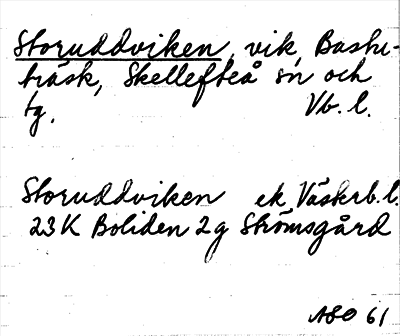 Storuddviken, vik, Bastu-
träsk, Skellefteå sn och
tg. Vb. l.
Storuddviken ek. Västerb. l.
23K Boliden 2g Strömsgård
ASO 61